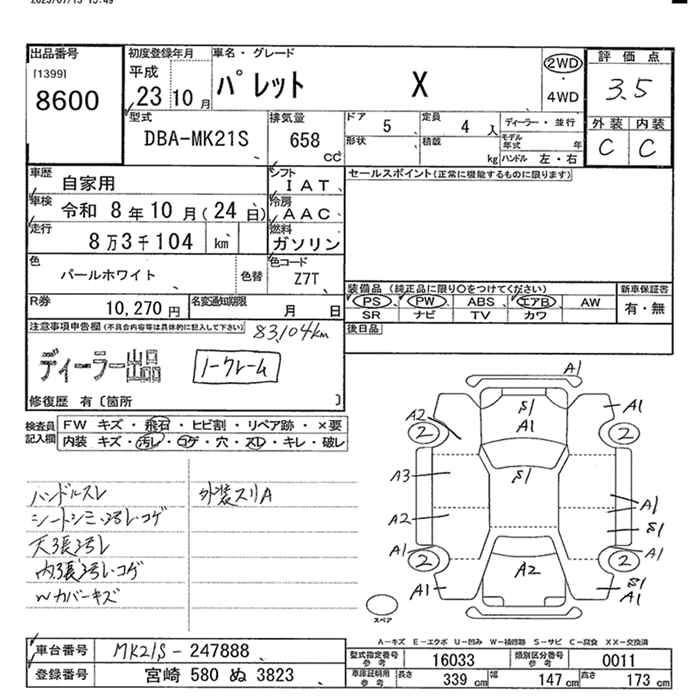 出品番号
[1399]
8600
初度登録年月
平成
23 10 月
車名・グレード
パレット X
2WD
・
4WD
評 価 点
3.5
外装 内装
C C
型式
DBA-MK21S
排気量
658
CC
ドア
5
定員
4 人
形状
積載
kg
ディーラー・並行
モデル
年式 年
ハンドル 左・右
車歴
自家用
シフト
I A T
車検
令和 8 年 10 月 ( 24 日)
冷房
A A C
走行
8 万 3 千 104 km
燃料
ガソリン
色
パールホワイト
色替
色コード
Z7T
セールスポイント(正常に機能するものに限ります)
装備品 (純正品に限り○をつけてください)
PS PW ABS エアB AW
SR ナビ TV カワ
新車保証書
有・無
後日品
R券
10,270 円
名変通知期限
月 日
注意事項申告欄(不具合内容等は具体的に記入して下さい)
83,104km
ディーラー出品
ノークレーム
修復歴 有〔箇所 〕
検査員
記入欄
FW キズ・飛石・ヒビ割・リペア跡・×要
内装 キズ・汚レ・コゲ・穴・スレ・キレ・破レ
ハンドルスレ
外装スリA
シートシミ・汚レ・コゲ
天張汚レ
内張汚レ・コゲ
Wカバーキズ
A1
A2
S1
A1
A1
2
2
A3
S1
A2
A1
S1
A1
A1
2
2
A2
A1
S1
A1
スペア
A－キズ E－エクボ U－凹み W－補修跡 S－サビ C－腐食 XX－交換済
車台番号
MK21S-247888
登録番号
宮崎 580 ぬ 3823
型式指定番号
参 考
16033
類別区分番号
参 考
0011
車庫証明用
参 考
長さ
339 cm
幅
147 cm
高さ
173 cm